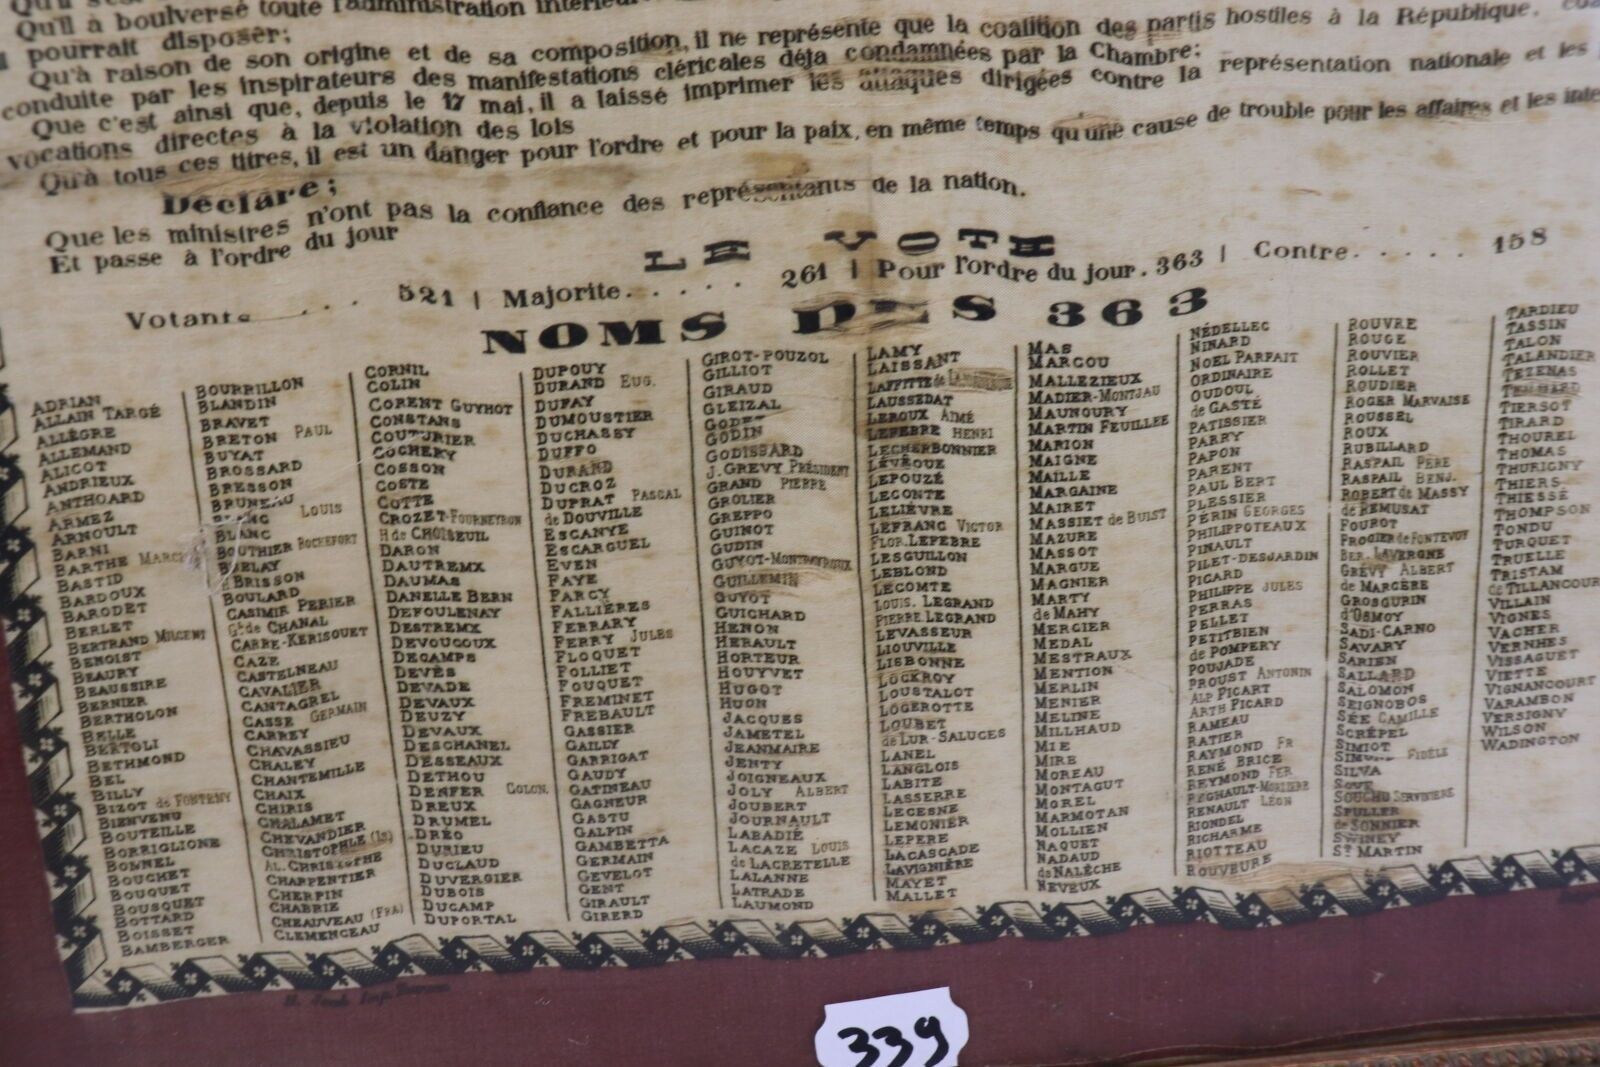 Qu'il a boulversé toute l'administration
pourrait disposer;
Qu'à raison de son origine et de sa composition, il ne représente que la coalition des partis hostiles à la République,
conduite par les inspirateurs des manifestations cléricales déja condamnées par la Chambre;
Que c'est ainsi que, depuis le 17 mai, il a laissé imprimer les attaques dirigées contre la représentation nationale et les
vocations directes à la violation des lois
Qu'à tous ces titres, il est un danger pour l'ordre et pour la paix, en même temps qu'une cause de trouble pour les affaires et les
Déclare;
Que les ministres n'ont pas la confiance des représentants de la nation.
Et passe à l'ordre du jour
LE VOTE
Votants . . . 521 | Majorite. . . . . 261 | Pour l'ordre du jour. 363 | Contre. . . . . 158
NOMS DES 363
ADRIAN
ALLAIN TARGÉ
ALLÈGRE
ALLEMAND
ALICOT
ANDRIEUX
ANTHOARD
ARMEZ
ARNOULT
BARNI
BARTHE
BASTID
BARDOUX
BARODET
BERLET
BERTRAND MILCENT
BENOIST
BEAURY
BEAUSSIRE
BERNIER
BERTHOLON
BELLE
BERTOLI
BETHMOND
BEL
BILLY
BIZOT de FONTENY
BIENVENU
BOUTEILLE
BORRIGLIONE
BONNEL
BOUCHET
BOUQUET
BOUSQUET
BOTTARD
BOISSET
BAMBERGER
BOURRILLON
BLANDIN
BRAVET
BRETON PAUL
BUYAT
BROSSARD
BRESSON
BRUNEAU
BLANC LOUIS
BLANC
BOUTHIER ROCHEFORT
BRELAY
BRISSON
BOULARD
CASIMIR PERIER
Gal de CHANAL
CARRE-KERISOUET
CAZE
CASTELNEAU
CAVALIER
CANTAGREL
CASSE GERMAIN
CARREY
CHAVASSIEU
CHALEY
CHANTEMILLE
CHAIX
CHIRIS
CHALAMET
CHEVANDIER
CHRISTOPHLE (Is)
AL. CHRISTOPHE
CHARPENTIER
CHERPIN
CHABRIE
CHEAUVEAU (FRA)
CLEMENCEAU
CORNIL
COLIN
CORENT GUYHOT
CONSTANS
COUTURIER
COCHERY
COSSON
COSTE
COTTE
CROZET-FOURNEYRON
H de CHOISEUIL
DARON
DAUTREMX
DAUMAS
DANELLE BERN
DEFOULENAY
DESTREMX
DEVOUCOUX
DECAMPS
DEVÈS
DEVADE
DEVAUX
DEUZY
DEVAUX
DESCHANEL
DESSEAUX
DETHOU
DENFER COLON.
DREUX
DRUMEL
DRÉO
DURIEU
DUCLAUD
DUVERGIER
DUBOIS
DUCAMP
DUPORTAL
DUPOUY
DURAND EUG.
DUFAY
DUMOUSTIER
DUCHASSY
DUFFO
DURAND
DUCROZ
DUPRAT PASCAL
de DOUVILLE
ESCANYE
ESCARGUEL
EVEN
FAYE
FARCY
FALLIÈRES
FERRARY
FERRY JULES
FLOQUET
FOLLIET
FOUQUET
FREMINET
FREBAULT
GASSIER
GAILLY
GARRIGAT
GAUDY
GATINEAU
GAGNEUR
GASTU
GALPIN
GAMBETTA
GERMAIN
GEVELOT
GENT
GIRAULT
GIRERD
GIROT-POUZOL
GILLIOT
GIRAUD
GLEIZAL
GODET
GODIN
GODISSARD
J. GREVY PRÉSIDENT
GRAND PIERRE
GROLIER
GREPPO
GUINOT
GUDIN
GUYOT-MONTPAYROUX
GUILLEMIN
GUYOT
GUICHARD
HENON
HERAULT
HORTEUR
HOUYVET
HUGOT
HUON
JACQUES
JAMETEL
JEANMAIRE
JENTY
JOIGNEAUX
JOLY ALBERT
JOUBERT
JOURNAULT
LABADIÉ
LACAZE LOUIS
de LACRETELLE
LALANNE
LATRADE
LAUMOND
LAMY
LAISSANT
LAFFITTE de
LAUSSEDAT
LEROUX AIMÉ
LEFEBRE HENRI
LECHERBONNIER
LÉVÊQUE
LEPOUZÉ
LECONTE
LELIÈVRE
LEFRANC VICTOR
FLOR. LEFEBRE
LESGUILLON
LEBLOND
LECOMTE
LOUIS. LEGRAND
PIERRE. LEGRAND
LEVASSEUR
LIOUVILLE
LISBONNE
LOCKROY
LOUSTALOT
LOGEROTTE
LOUBET
de LUR-SALUCES
LANEL
LANGLOIS
LABITE
LASSERRE
LECESNE
LEMONIER
LEPERE
LACASCADE
LAVIGNIÈRE
MAYET
MALLET
MAS
MARCOU
MALLEZIEUX
MADIER-MONTJAU
MAUNOURY
MARTIN FEUILLEE
MARION
MAIGNE
MAILLE
MARGAINE
MAIRET
MASSIET de BUIST
MAZURE
MASSOT
MARGUE
MAGNIER
MARTY
de MAHY
MERCIER
MEDAL
MESTRAUX
MENTION
MERLIN
MENIER
MELINE
MILLHAUD
MIE
MIRE
MOREAU
MONTAGUT
MOREL
MARMOTAN
MOLLIEN
NAQUET
NADAUD
de NALÈCHE
NEVEUX
NÉDELLEC
NINARD
NOEL PARFAIT
ORDINAIRE
OUDOUL
de GASTÉ
PATISSIER
PARRY
PAPON
PARENT
PAUL BERT
PLESSIER
PÉRIN GEORGES
PHILIPPOTEAUX
PINAULT
PILET-DESJARDIN
PICARD
PHILIPPE JULES
PERRAS
PELLET
PETITBIEN
de POMPERY
POUJADE
PROUST ANTONIN
ALP PICART
ARTH PICARD
RAMEAU
RATIER
RAYMOND FR
RENÉ BRICE
REYMOND FER
REGNAULT-MORIZERE
RENAULT LÉON
RIONDEL
RICHARME
RIOTTEAU
ROUVEURE
ROUVRE
ROUGE
ROUVIER
ROLLET
ROUDIER
ROGER MARVAISE
ROUSSEL
ROUX
RUBILLARD
RASPAIL PÈRE
RASPAIL BENJ.
ROBERT de MASSY
de REMUSAT
FOUROT
FROGIER de FONTEVOY
BER. LAVERGNE
GRÉVY ALBERT
de MARCÈRE
GROSGURIN
d'OSMOY
SADI-CARNO
SAVARY
SARIEN
SALLARD
SALOMON
SEIGNOBOS
SÉE CAMILLE
SCRÉPEL
SIMIOT
FIDÈLE
SILVA
SOYE
SOUCHU SERVINIERE
SPULLER
de SONNIER
SWINEY
ST MARTIN
TARDIEU
TASSIN
TALON
TALANDIER
TEZENAS
TIERSOT
TIRARD
THOUREL
THOMAS
THURIGNY
THIERS
THIESSÉ
THOMPSON
TONDU
TURQUET
TRUELLE
TRISTAM
de TILLANCOUR
VILLAIN
VIGNES
VACHER
VERNHES
VISSAGUET
VIETTE
VIGNANCOURT
VARAMBON
VERSIGNY
WILSON
WADINGTON
339